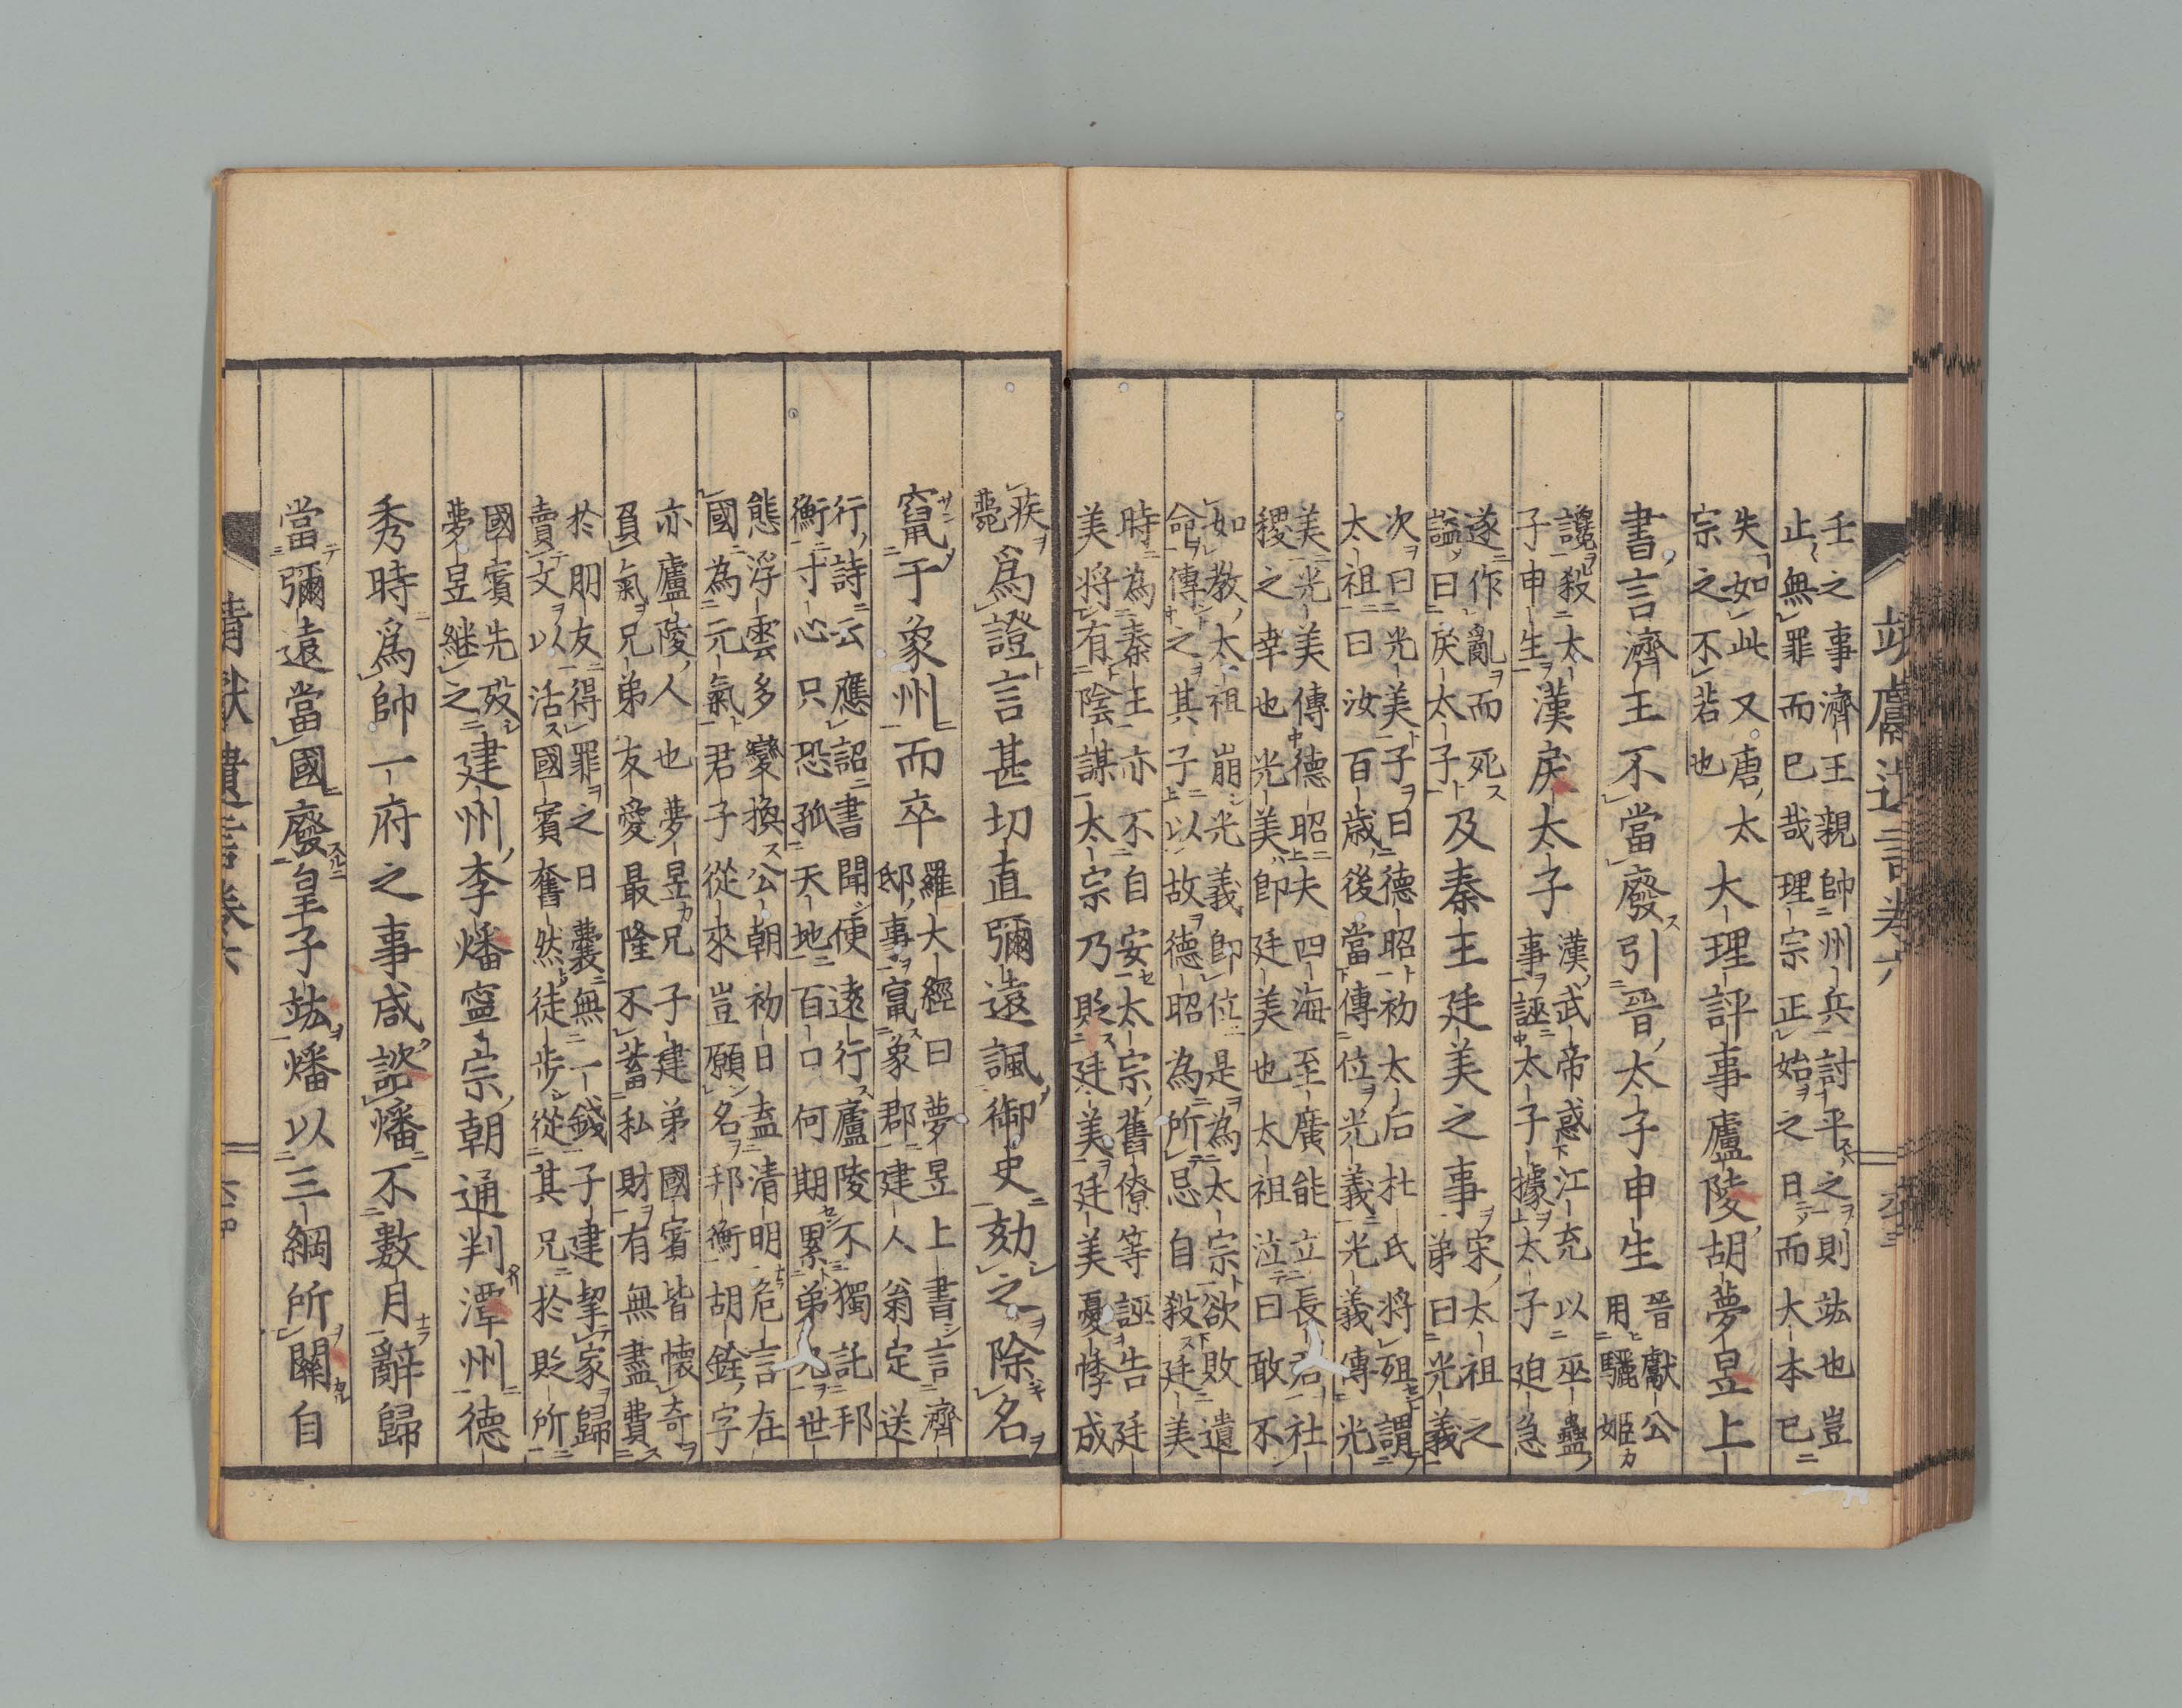 壬之事濟王親帥州兵討平之則竑也豈
止無罪而已哉理宗正始之日而大本已
失如此又唐太
宗之不若也
大理評事盧陵胡夢昱上
書言濟王不當廢引晉太子申生
晉獻公
用驪姬
讒殺太
子申生
漢戾太子
漢武帝惑江充以巫蠱
事誣太子據太子迫急
遂作亂而死
諡曰戾太子
及秦王廷美之事
宋太祖之
弟曰光義
次曰光美子曰德昭初太后杜氏將殂謂
太祖曰汝百歲後當傳位光義光義傳光
美光美傳德昭夫四海至廣能立長君社
稷之幸也光美即廷美也太祖泣曰敢不
如教太祖崩光義即位是為太宗欲敗遺
命傳之其子以故德昭為所忌自殺廷美
時為秦王亦不自安太宗舊僚等誣告廷
美将有陰謀太宗乃貶廷美廷美憂悸成
疾
薨
爲證言甚切直彌遠諷御史劾之除名
竄于象州而卒
羅大經曰夢昱上書言濟
邸事竄象郡建人翁定送
行詩云應詔書聞便遠行盧陵不獨託邦
衡寸心只恐孤天地百口何期累弟兄世
態浮雲多變換公朝初日盍清明危言在
國為元氣君子從來豈願名邦衡胡銓字
亦盧陵人也夢昱兄子建弟國賓皆懷奇
負氣兄弟友愛最隆不蓄私財有無盡費
於朋友得罪之日囊無一錢子建挈家歸
賣文以活國賓奮然徒步從其兄於貶所
國賓先歿
夢昱継之
建州李燔寧宗朝通判潭州德
秀時爲帥一府之事咸諮燔不數月辭歸
當彌遠當國廢皇子竑燔以三綱所關自